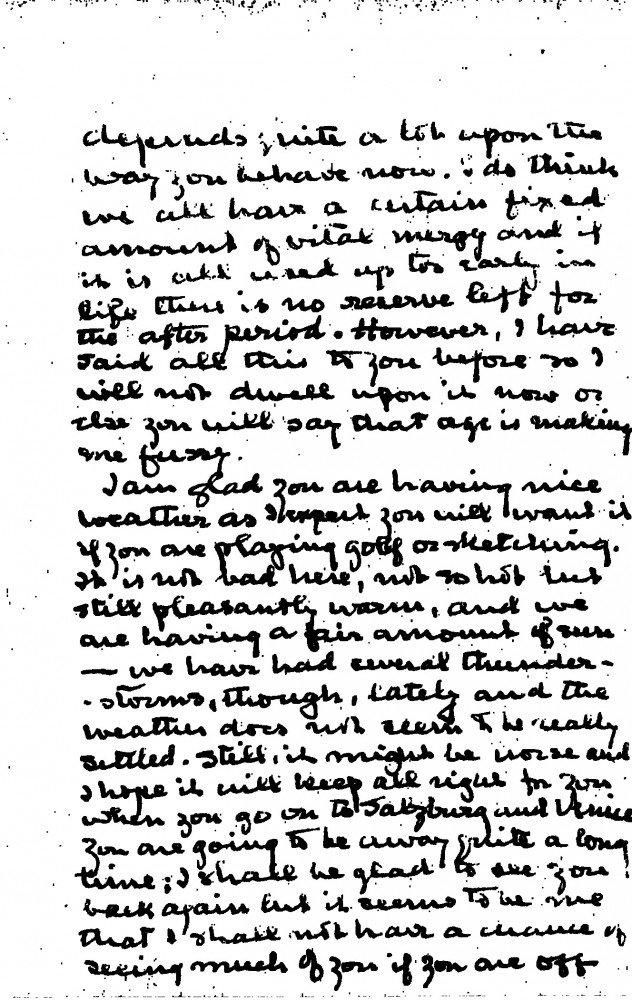 depends quite a lot upon the
way you behave now. I do think
we all have a certain fixed
amount of vital energy and if
it is all used up too early in
life there is no reserve left for
the after period. However, I have
said all this to you before so I
will not dwell upon it now or
else you will say that age is making
me fussy.
I am glad you are having nice
weather as I expect you will want it
if you are playing golf or sketching.
It is not bad here, not so hot but
still pleasantly warm, and we
are having a fair amount of sun
— we have had several thunder-
-storms, though, lately and the
weather does not seem to be really
settled. Still, it might be worse and
I hope it will keep all right for you
when you go on to Salzburg and Venice
You are going to be away quite a long
time; I shall be glad to see you
back again but it seems to be me
that I shall not have a chance of
seeing much of you if you are off